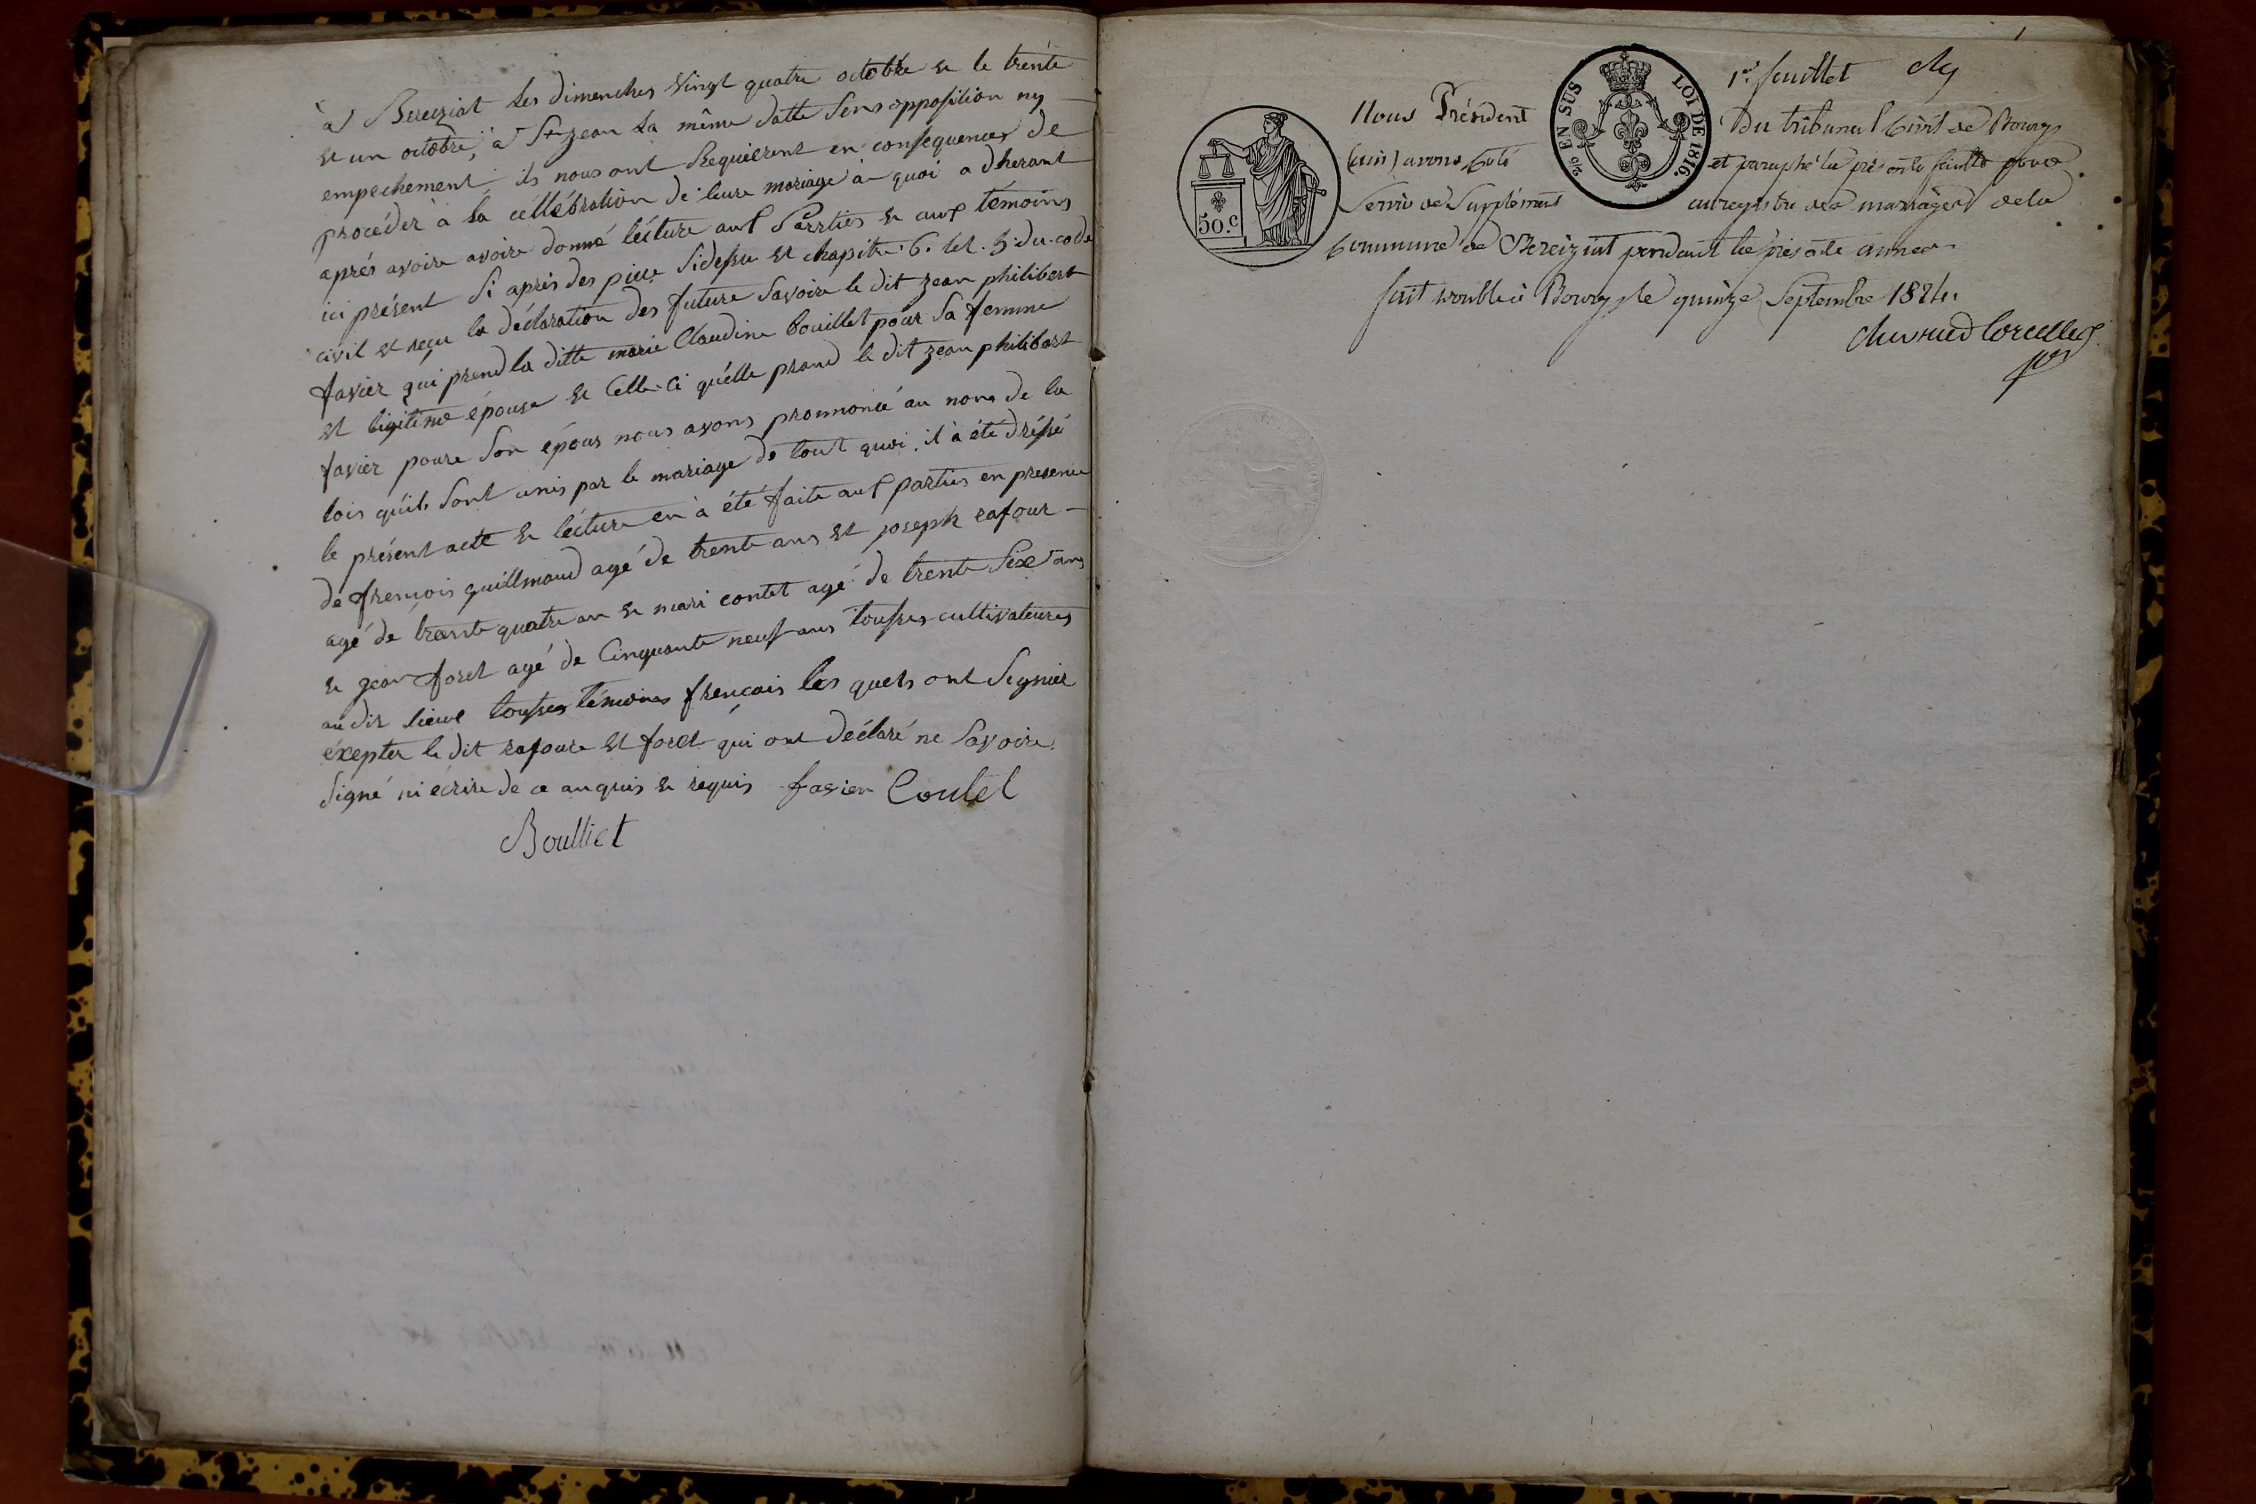 à Bereziat les dimenches vingt quatre octobre et le trente
et un octobre, à St jean la même datte sens opposition ny
empechement, ils nous ont Requierent en consequences de
procéder à la céllébration de leure mariage à quoi adherant
aprés avoire avoire donné lécture aux Parrties et aux témoins
ici présent si aprés des piece sidessu et chapitre 6. tet. 5 du code
civil et reçu la déclaration des future savoire le dit jean philibert
favier qui prend la ditte marie Claudine bouillet pour sa femme
et ligitime épouse et Celle-ci quélle prend le dit jean philibert
favier poure son époux nous avons pronnoncé au nom de la
lois quil sont unis par le mariage de tout quoi, il à été dréssé
le présent acte et lécture en à été faite aux parties en presence
de frençois guillmaud agé de trente ans et joseph rafour
agé de trante quatre an et mari contet agé de trente six ans
et jean foret agé de Cinquante neuf ans tousses cultivateures
audit lieux tousses témoins frençais les quels ont Signier
éxepter le dit rafoure et foret qui ont déclaré ne savoire
signé ni écrire de ce anquis et requis favier Coulet
Boulliet
1er feuillet
Nous Président du tribunal Civil de Bourg
(ain) avons coté et paraphé la présente feuille pour
servir de Supplément au registre des mariages de la
Commune de Bereiziat pendant la présente année.
fait double à Bourg le quinze Septembre 1824.
50.C
2/10 EN SUS
LOI DE 1816.